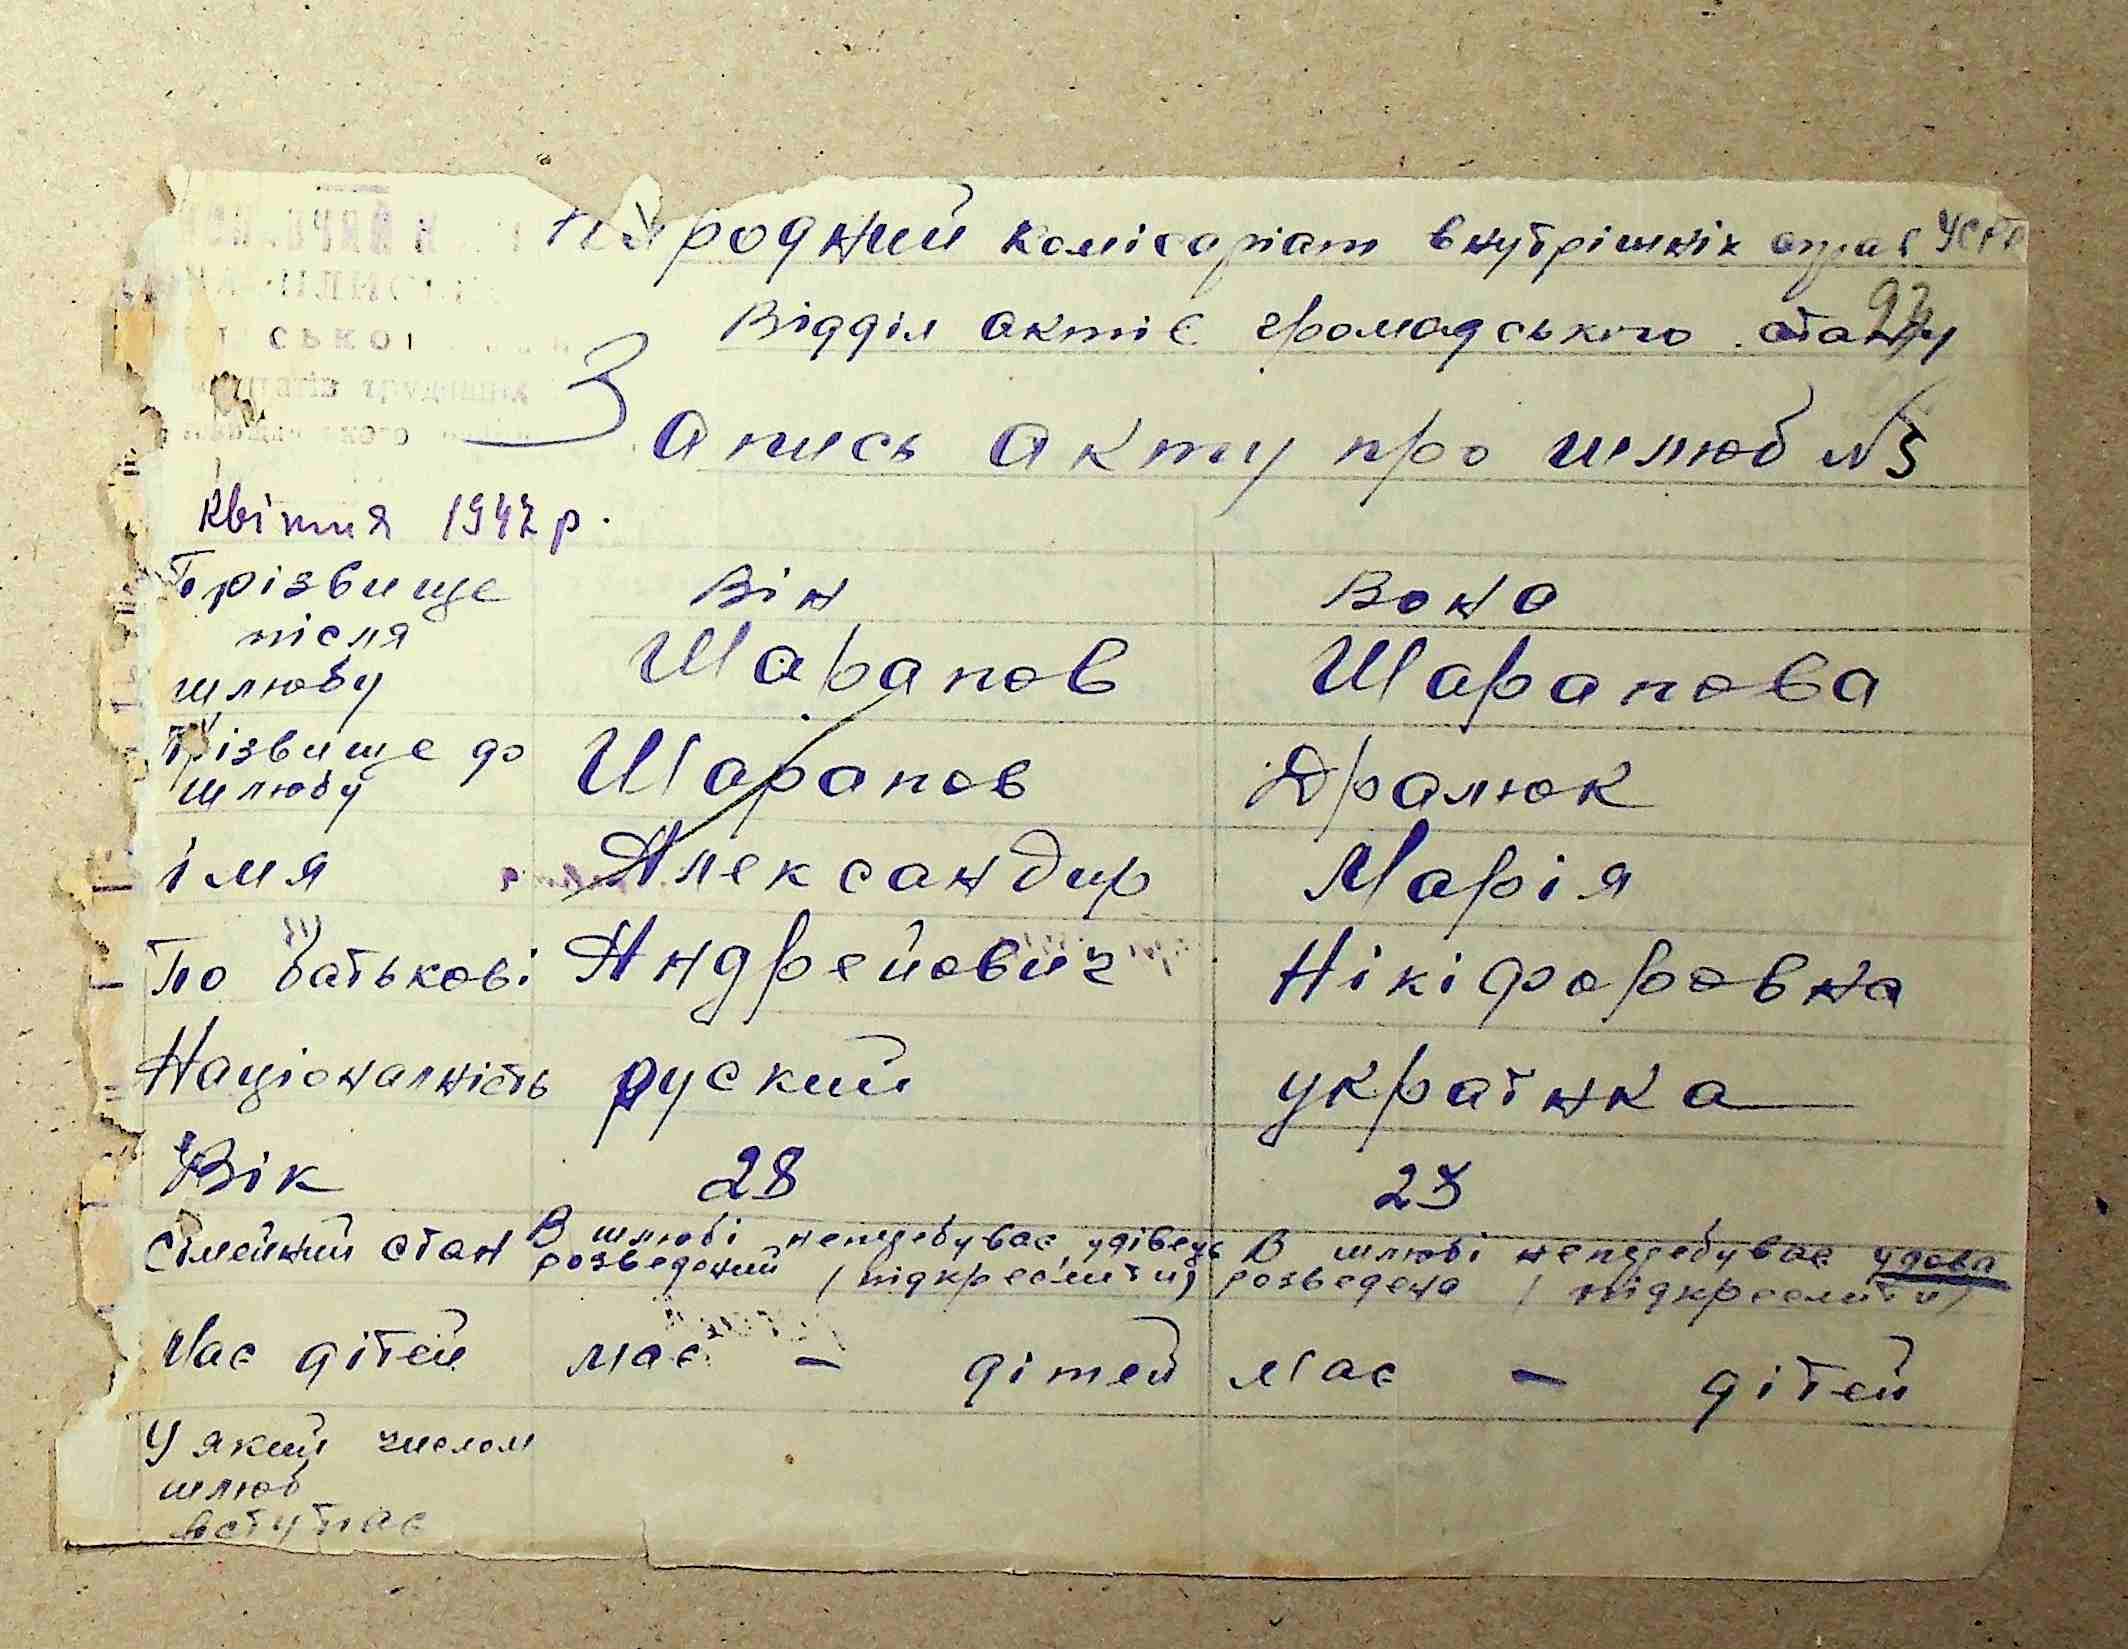 Народний комісаріат внутрішнік справ УСРР
Відділ актів громадського стану
Запись акту про шлюб №5
квітня 1942 р.
Прізвище після шлюбу Він Шарапов Вона Шарапова
Прізвище до шлюбу Шарапов Дралюк
імя Александир Марія
По батькові Андрейович Нікіфоровна
Націоналність руский українка
Вік 28 23
Сімейний стан В шлюбі непщебуває удівець розведений (підкреслити) В шлюбі непщебуває удова розведена (підкреслити)
Має дітей має – дітей має – дітей
У який числом
шлюб
вступає